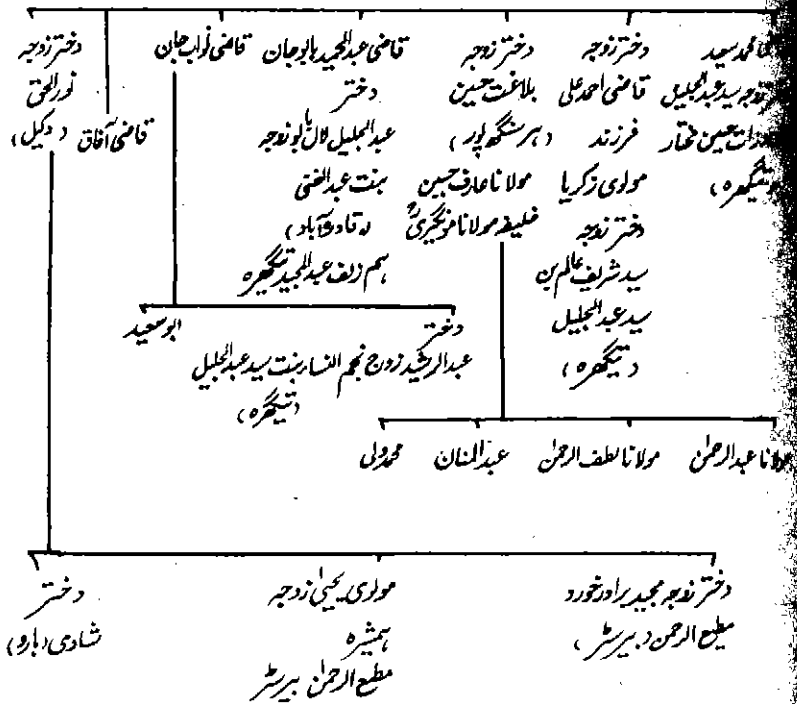 محمد سعید
زوجہ سید عبد الجلیل
حسین مختار
دختر زوجہ
قاضی احمد علی
فرزند
مولوی زکریا
دختر زوجہ
سید شریف عالم بن
سید عبد الجلیل
(تیگھرہ)
دختر زوجہ
بلاغت حسین
(ہرسنگھ پور)
مولانا عارف حسین
خلیفہ مولانا مونگیری
قاضی عبد الحمید بابو جان
دختر
عبد الجلیل لال بابو زوجہ
بنت عبد الغنی
(قادرآباد)
ہم زلف عبد المجید تیگھرہ
قاضی نواب جان
قاضی آفاق
دختر زوجہ
نور الحق
(وکیل)
دختر
عبد الرشید زوج نجم النساء بنت سید عبد الجلیل
(تیگھرہ)
ابو سعید
مولانا عبد الرحمن
مولانا لطف الرحمن
عبد المنان
محمد ولی
دختر زوجہ مجید برادر خورد
مطیع الرحمن (بیرسٹر)
مولوی یحییٰ زوجہ
ہمشیرہ
مطیع الرحمن بیرسٹر
دختر
شادی (بارو)